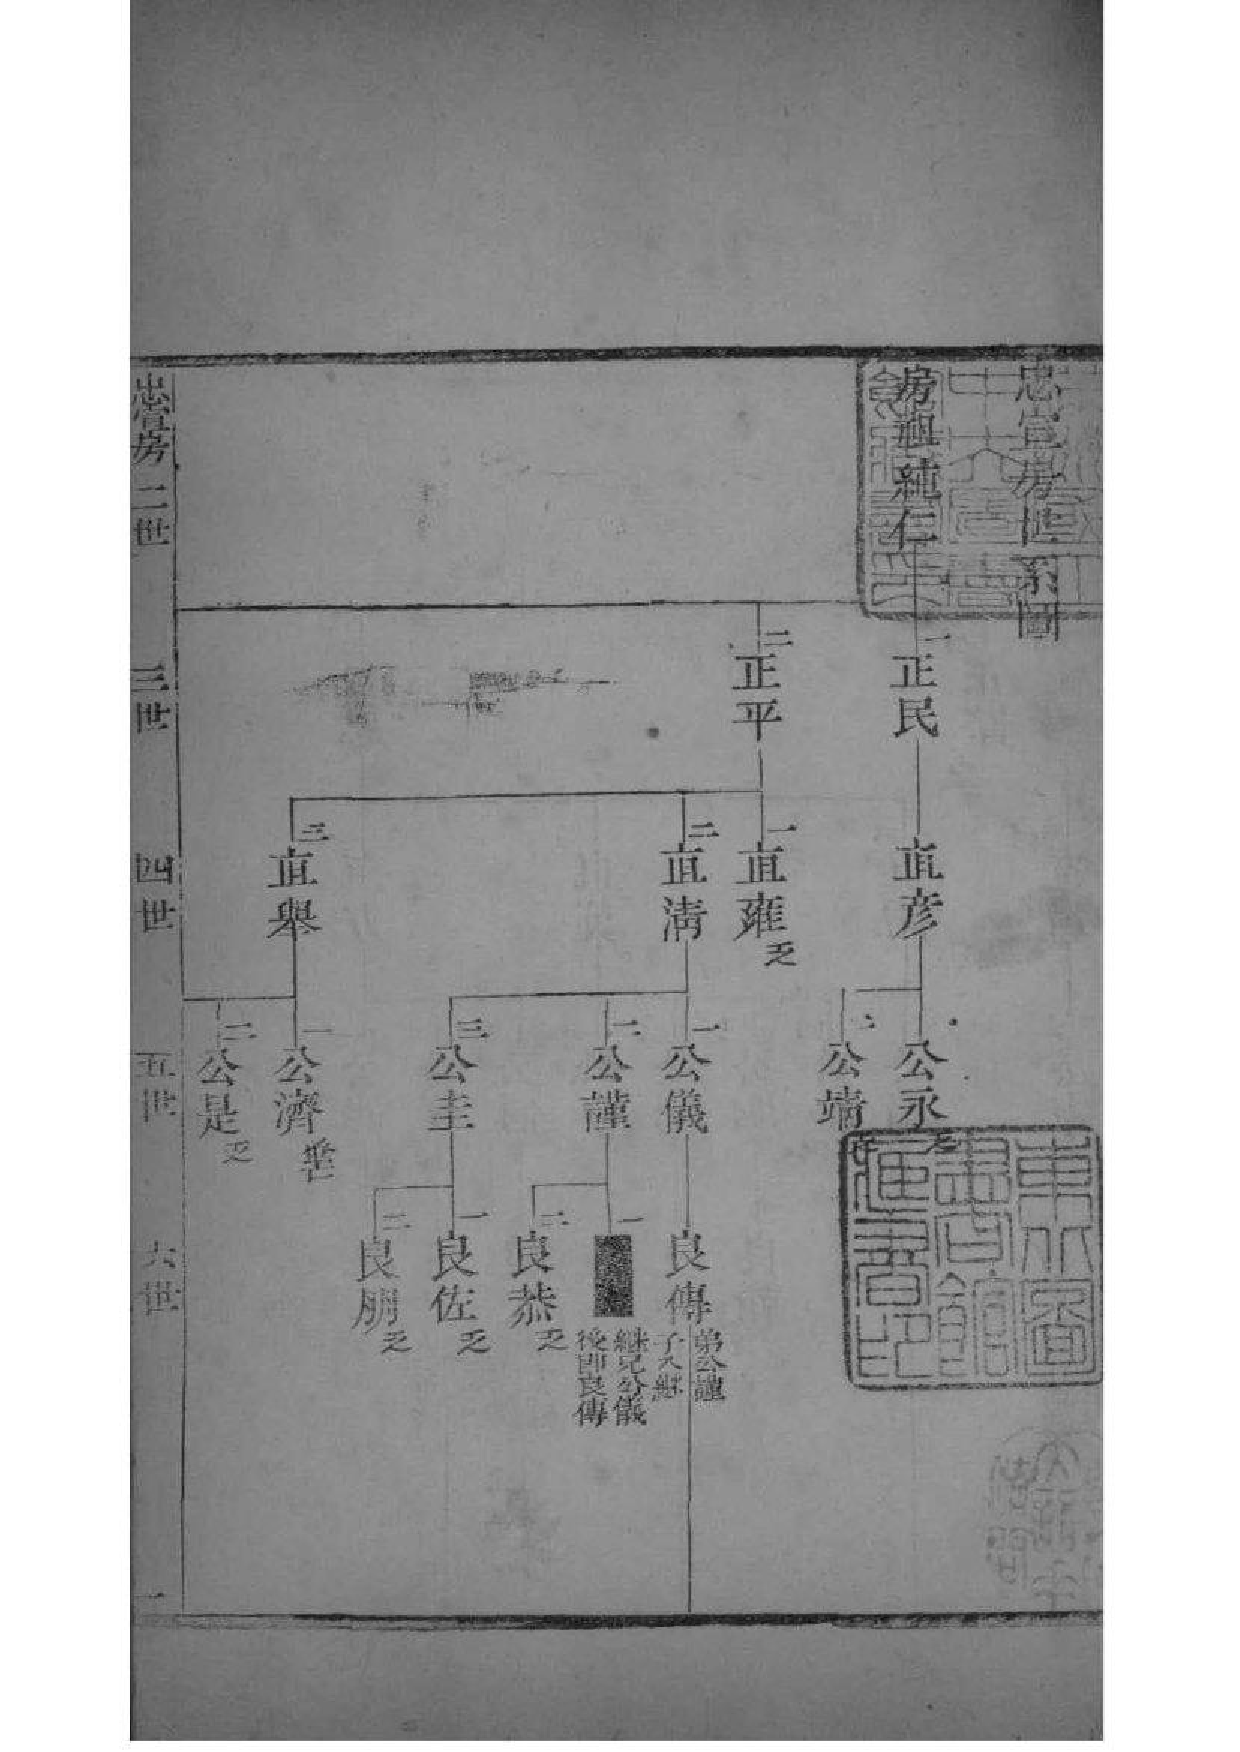 忠宣房世系圖
房祖純仁
一
正民
直彥
公永
公端
二
正平
一
直雍
乏
二
直淸
一
公儀
良傳
弟公謹
子入繼
二
公謹
一
繼兄公儀
後即良傳
二
良恭
乏
三
公圭
一
良佐
乏
二
良朋
乏
三
直舉
一
公濟
二
公是
乏
忠宣房
二世
三世
四世
五世
六世
一